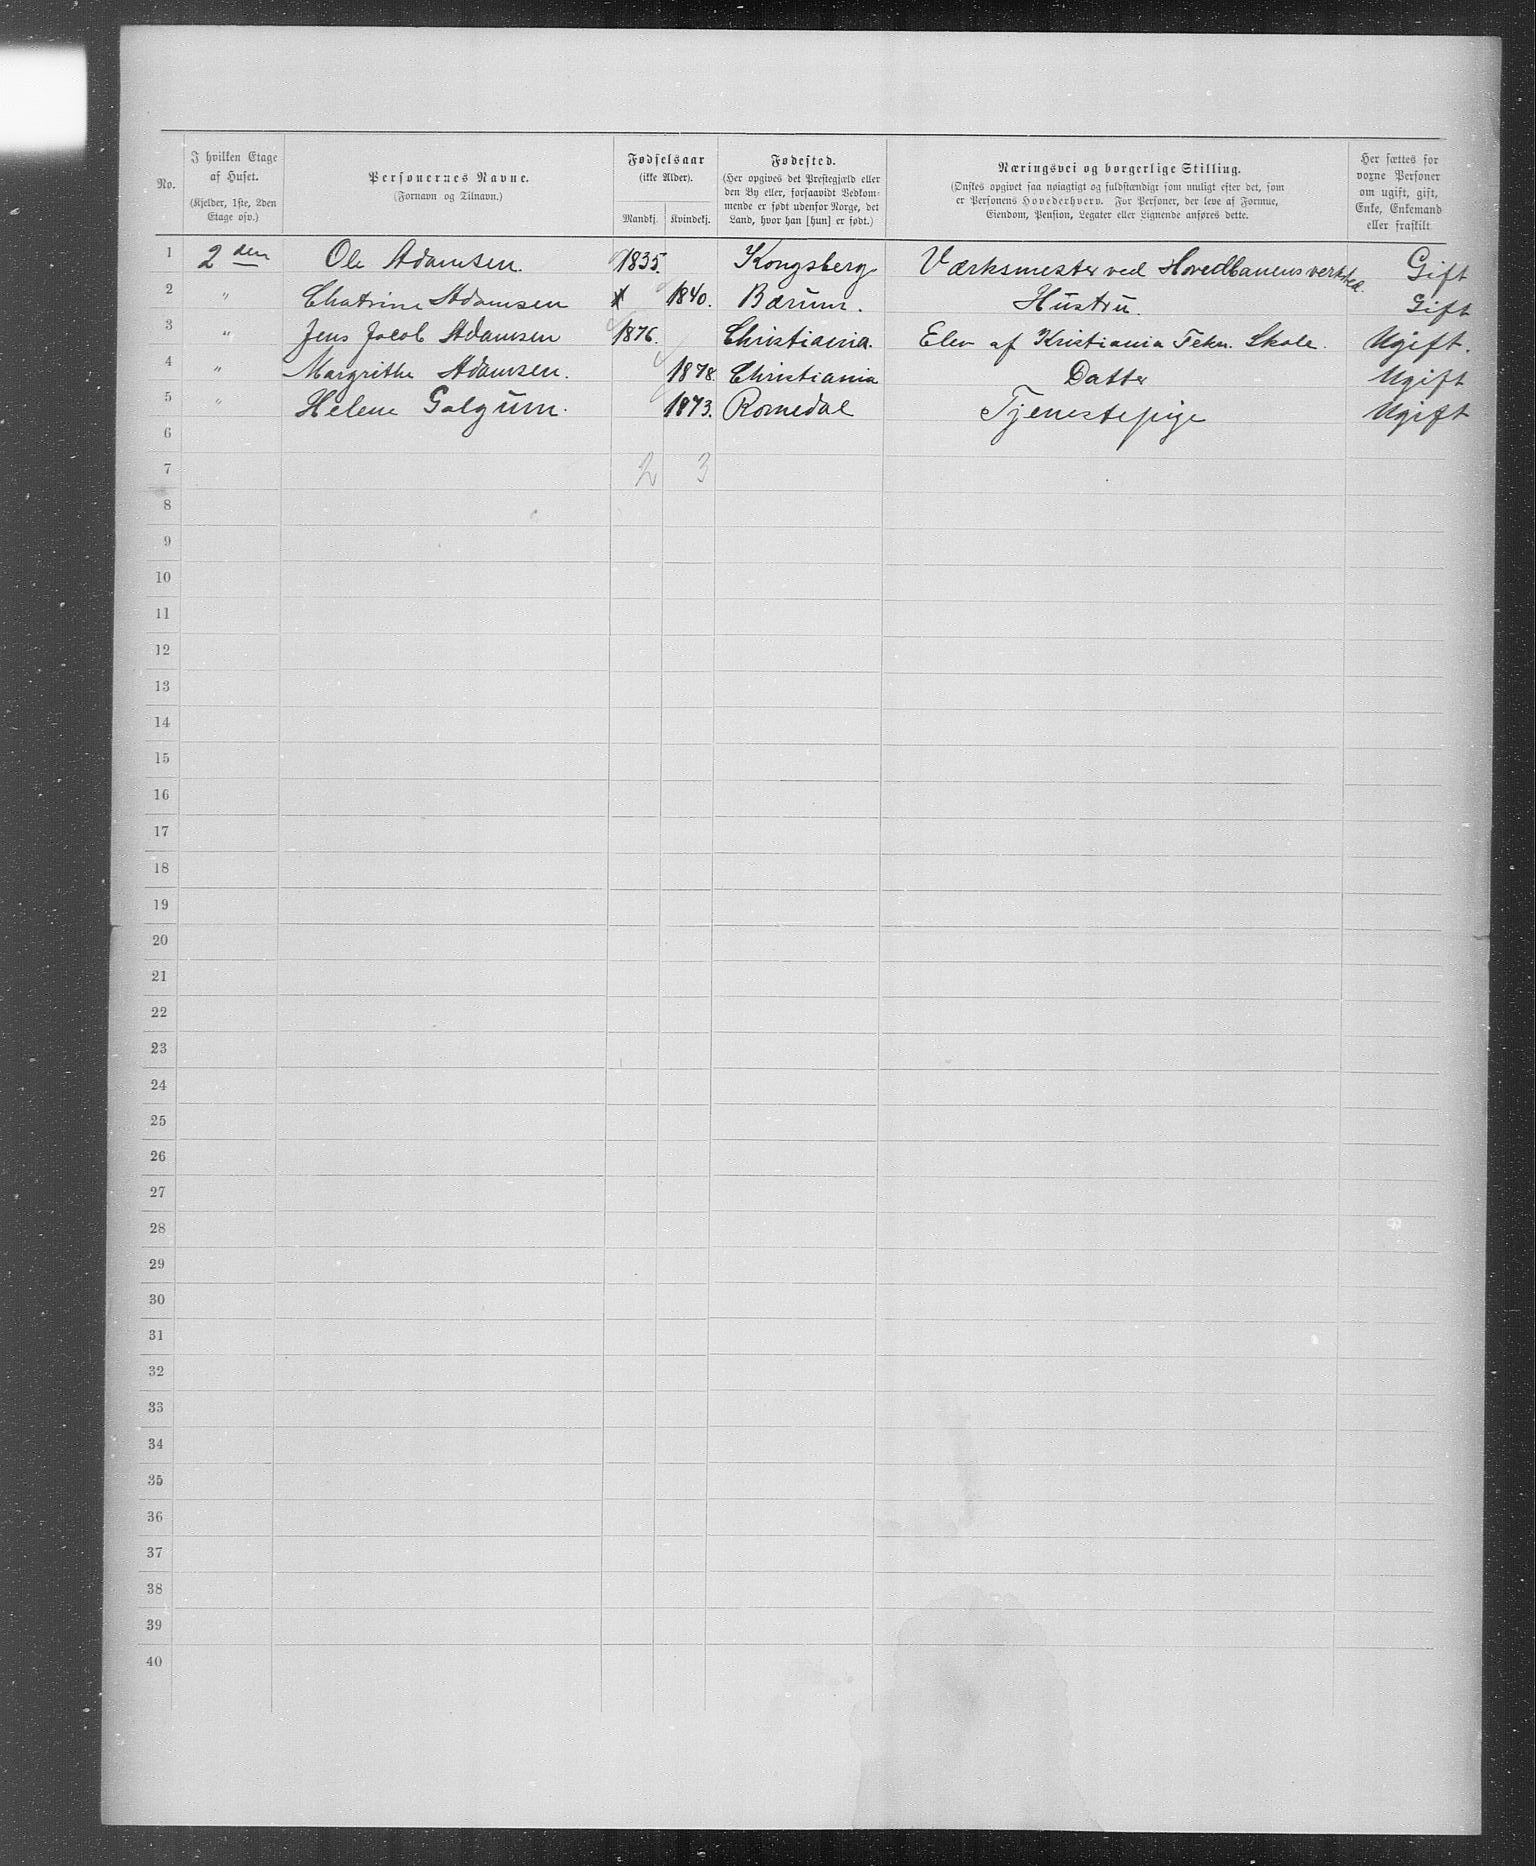 No.
I hvilken Etage
af Huset.
(Kjelder, 1ste, 2den
Etage osv.)
Personernes Navne.
(Fornavn og Tilnavn.)
Fødselsaar
(ikke Alder).
Mandkj. Kvindekj.
Fødested.
(Her opgives det Prestegjæld eller
den By eller, forsaavidt Vedkom-
mende er født udenfor Norge, det
Land, hvor han [hun] er født.)
Næringsvei og borgerlige Stilling.
(Ønskes opgivet saa nøiagtigt og fuldstændigt som muligt efter det, som
er Personens Hovederhverv. For Personer, der leve af Formue,
Eiendom, Pension, Legater eller Lignende anføres dette.
Her sættes for
voxne Personer
om ugift, gift,
Enke, Enkemand
eller fraskilt.
1 2den Ole Adamsen. 1835. Kongsberg Værksmester ved Hovedbanens verksted. Gift
2 " Chatrine Adamsen 1840. Bærum. Hustru. Gift
3 " Jens Jacob Adamsen 1876. Christiania. Elev af Kristiania Tekn. Skole. Ugift.
4 " Margrithe Adamsen. 1878. Christiania Datter Ugift
5 " Helene Galgum. 1873. Romedal Tjenestepige Ugift
6
7 2 3
8
9
10
11
12
13
14
15
16
17
18
19
20
21
22
23
24
25
26
27
28
29
30
31
32
33
34
35
36
37
38
39
40